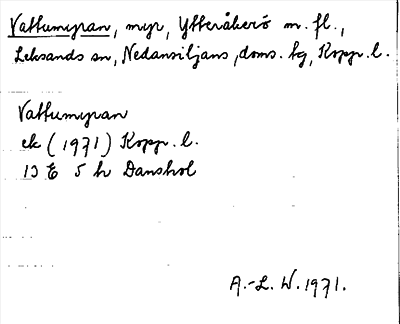 Vattumyran, myr, Ytteråkerö m. fl.,
Leksands sn, Nedansiljans, doms. tg, Kopp. l.
Vattumyran
ek (1971) Kopp. l.
13 E 5 h Danshol
A.-L. W. 1971.